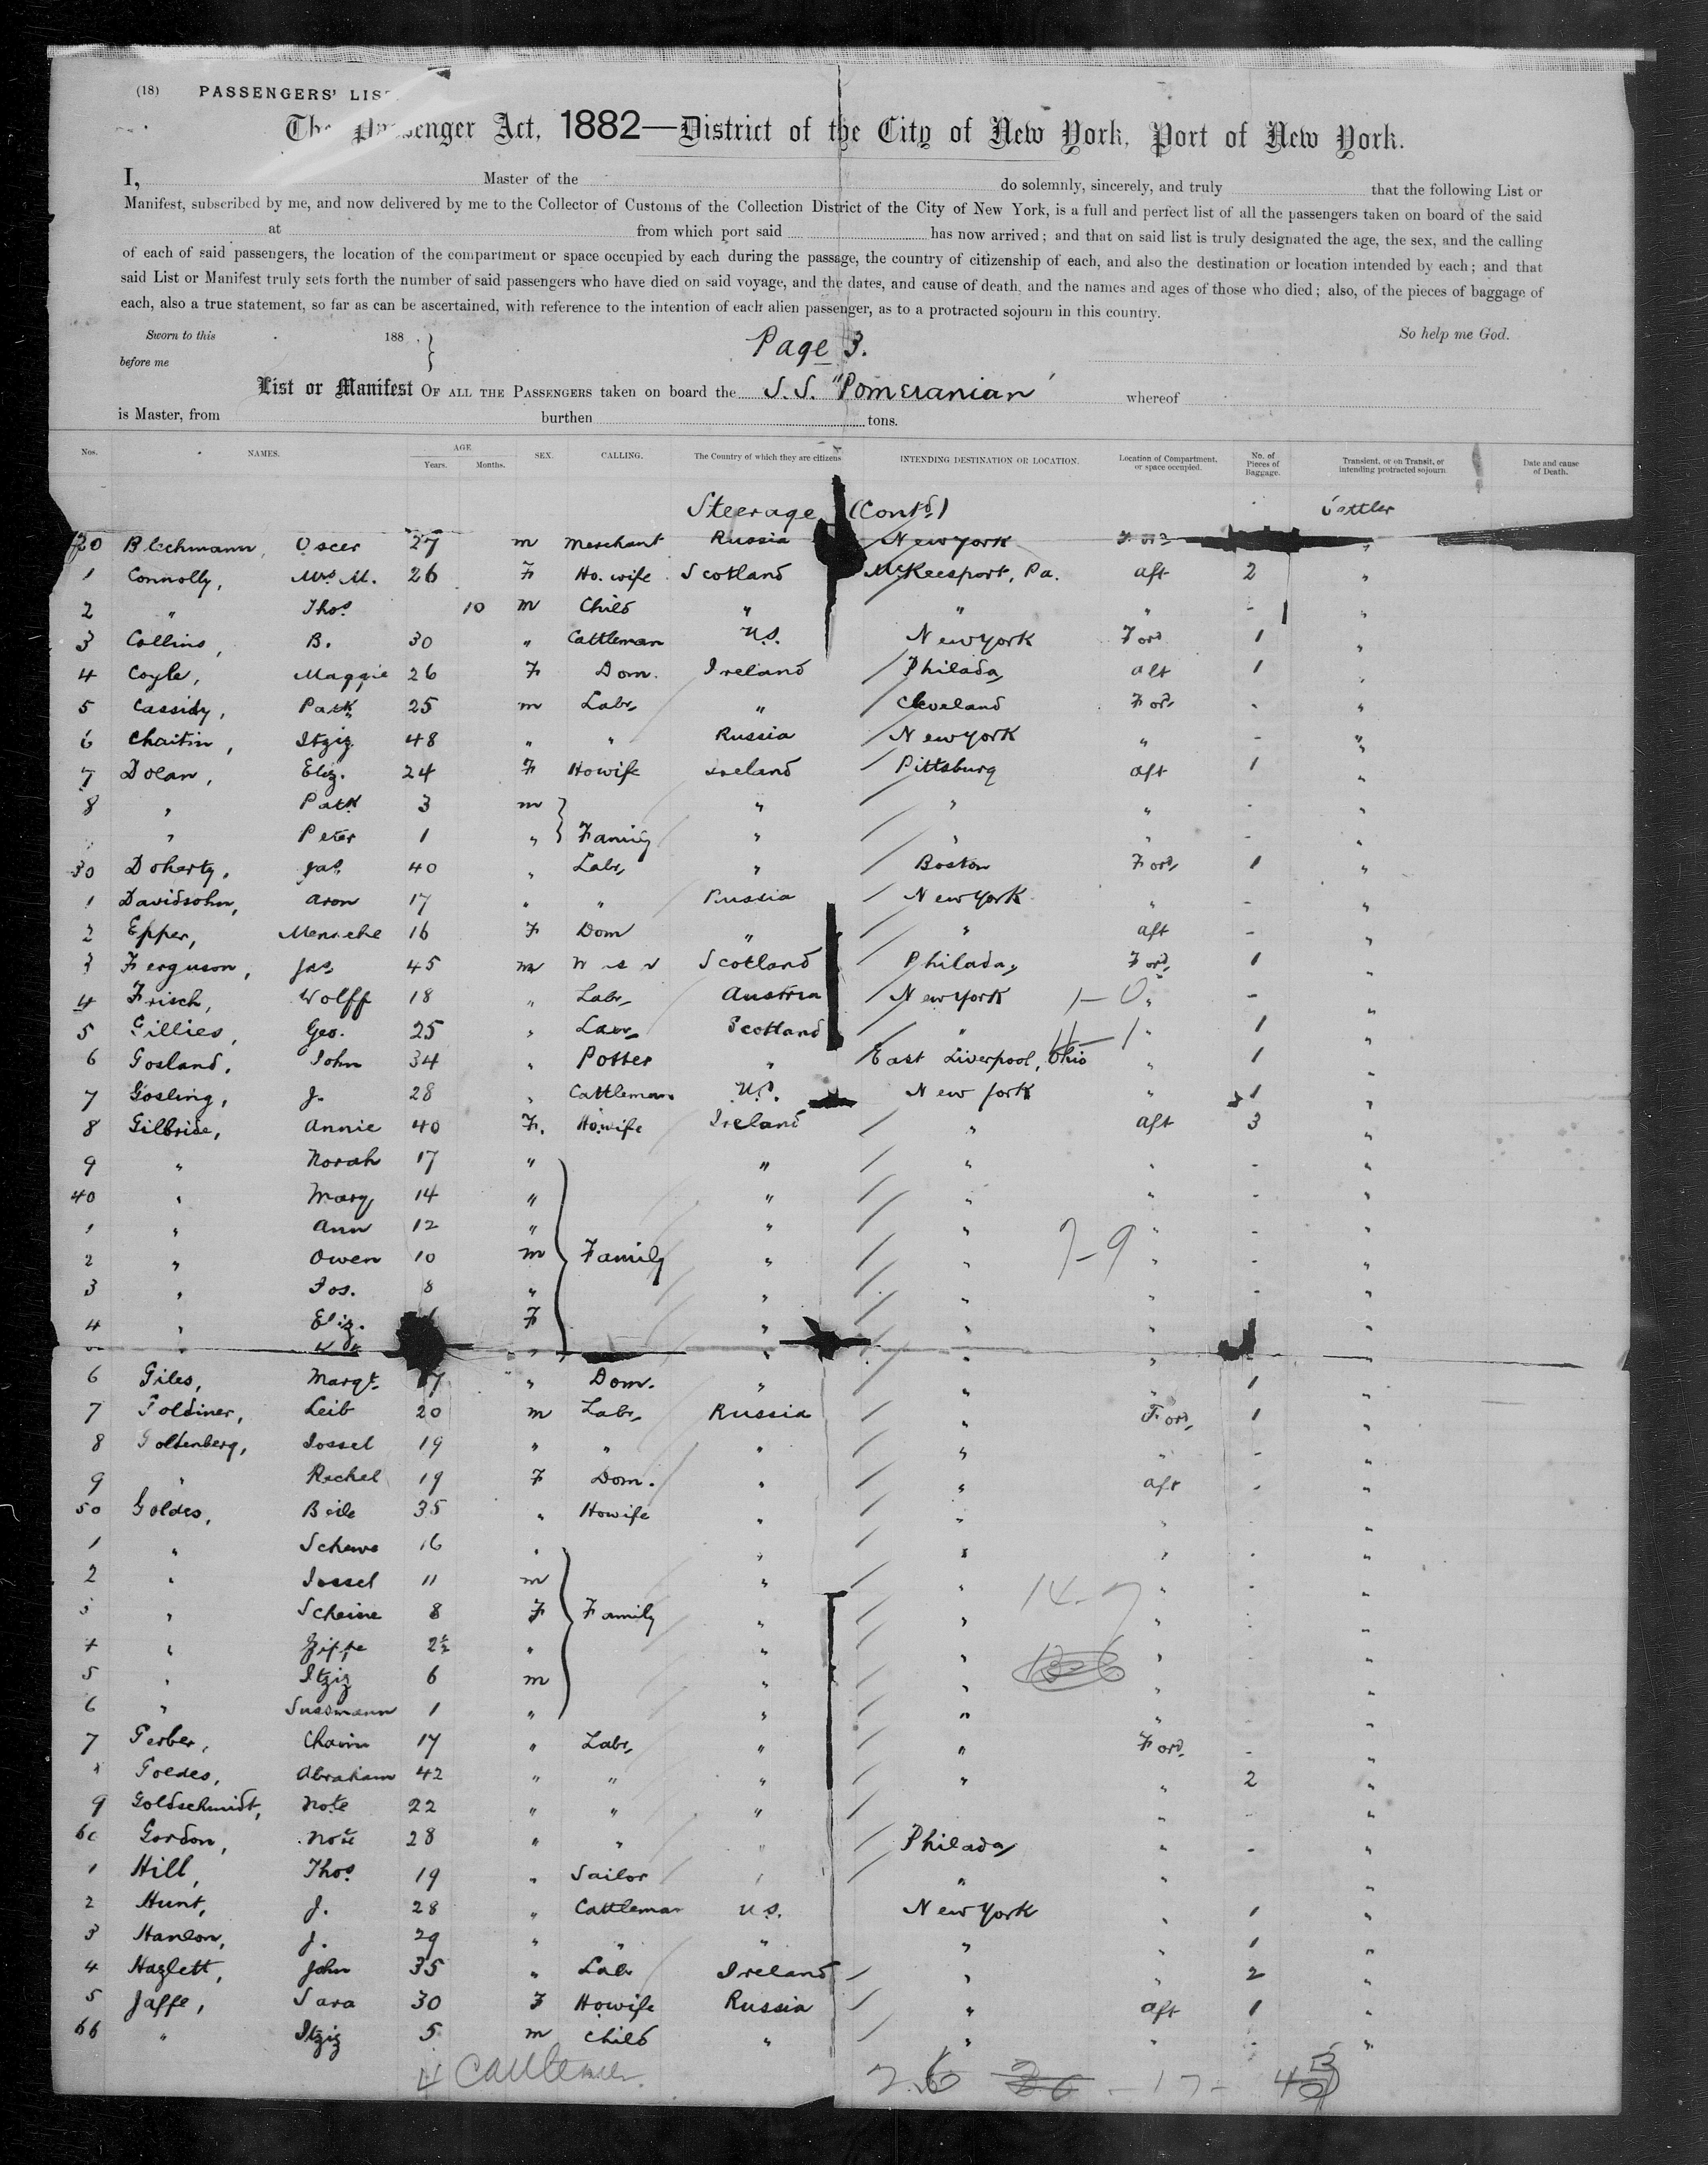 (18) PASSENGERS' LIST
The Passenger Act, 1882—District of the City of New York, Port of New York.
I, Master of the do solemnly, sincerely, and truly that the following List or
Manifest, subscribed by me, and now delivered by me to the Collector of Customs of the Collection District of the City of New York, is a full and perfect list of all the passengers taken on board of the said
at from which port said has now arrived; and that on said list is truly designated the age, the sex, and the calling
of each of said passengers, the location of the compartment or space occupied by each during the passage, the country of citizenship of each, and also the destination or location intended by each; and that
said List or Manifest truly sets forth the number of said passengers who have died on said voyage, and the dates, and cause of death, and the names and ages of those who died; also, of the pieces of baggage of
each, also a true statement, so far as can be ascertained, with reference to the intention of each alien passenger, as to a protracted sojourn in this country.
Sworn to this 188 . So help me God.
before me
Page 3.
List or Manifest OF ALL THE PASSENGERS taken on board the S.S. "Pomeranian" whereof
is Master, from burthen tons.
Nos. NAMES. AGE. Years. Months. SEX. CALLING. The Country of which they are citizens INTENDING DESTINATION OR LOCATION. Location of Compartment, or space occupied. No. of Pieces of Baggage. Transient, or on Transit, or intending protracted sojourn Date and cause of Death.
Steerage (Contd.) Settler
20 Blechmann, Oscer 27 m Merchant Russia New York "
1 Connolly, Mrs M. 26 F Ho.wife Scotland McKeesport, Pa. aft 2 "
2 " Thos 10 m Child " " " - "
3 Collins, B. 30 " Cattleman U.S. New York Ford 1 "
4 Coyle, Maggie 26 F Dom. Ireland Philada, aft 1 "
5 Cassidy, Patk 25 m Labr, " Cleveland Ford - "
6 Chaitin, Itzig 48 " " Russia New York " - "
7 Dolan, Eliz. 24 F Howife Ireland Pittsburg aft 1 "
8 " Patk 3 m " " " - "
" Peter 1 " Family " " " - "
30 Doherty, Jas. 40 " Labr, " Boston Ford, 1 "
1 Davidsohn, Aron 17 " " Russia New York " - "
2 Epper, 16 F Dom " " aft - "
3 Ferguson, Jas, 45 m Scotland Philada, Ford, 1 "
4 Frisch, Wolff 18 " Labr, Austria New York 1-0 " - "
5 Gillies, Geo. 25 " Scotland " 11-1 " 1 "
6 Gosland, John 34 " Potter " East Liverpool, Ohio " 1 "
7 Gosling, J. 28 " Cattleman U.S. New York " 1 "
8 Gilbride, Annie 40 F. Howife Ireland " aft 3 "
9 " Norah 17 " " " " - "
40 " Mary 14 " " " " - "
1 " Ann 12 " " " " - "
2 " Owen 10 m Family " " 7-9 " - "
3 " Jos. 8 " " " " - "
4 " Eliz. F " " " "
6 Giles, Margt. 17 " Dom. " " " 1 "
7 Goldiner, Leib 20 m Labr, Russia " Ford, 1 "
8 Goldenberg, Jossel 19 " " " " " - "
9 " Rachel 19 F Dom. " " aft - "
50 Goldes, Beile 35 " Howife " " " "
1 " Schewe 16 " " " " - "
2 " Jossel 11 m " " 14-7 " - "
3 " Scheine 8 F Family " " " - "
4 " 2½ " " " " - "
5 " Itzig 6 m " " " - "
6 " Sussmann 1 " " " " - "
7 Gerber, Chaim 17 " Labr, " " Ford, - "
8 Goedes, Abraham 42 " " " " " 2 "
9 Goldschmidt, Note 22 " " " " - "
60 Gordon, Note 28 " " " Philada, " - "
1 Hill, Thos. 19 " Sailor " " " "
2 Hunt, J. 28 " Cattleman U.S. New York " 1 "
3 Hanlon, J. 29 " " " " " 1 "
4 Hazlett, John 35 " Labr Ireland " " 2 "
5 Jaffe, Sara 30 F Howife Russia " aft 1 "
66 " Itzig 5 m Child " " " - "
4 Cattlemen. 26 - 17 -